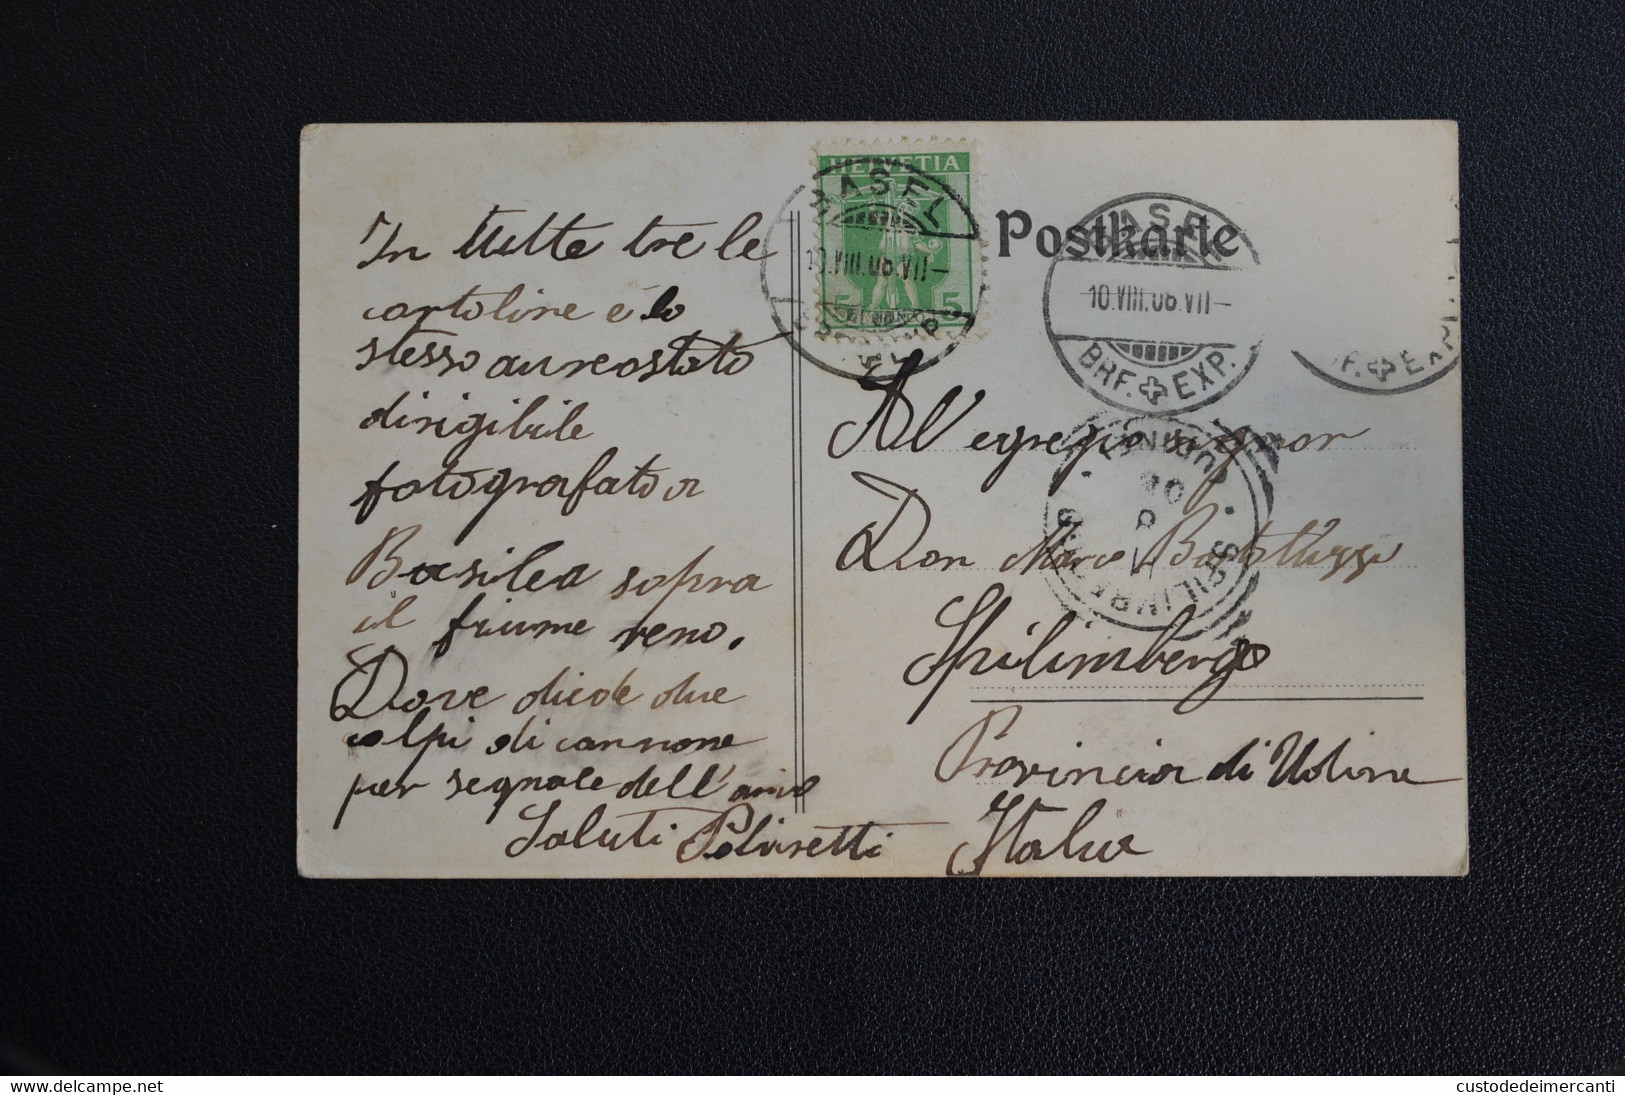 In tutte tre le
cartoline è lo
stesso aureostato
dirigibile
fotografato a
Basilea sopra
il fiume reno.
Dove diede due
colpi di cannone
per segnale dell'
Saluti
HELVETIA
5 5
BASEL
10.VIII.08.VII-
BRF. EXP.
Postkarte
BASEL
10.VIII.08.VII-
BRF. EXP.
F. EXP.
All' egregio signor
Don Marco Bortoluzzi
SPILIMBERGO
Spilimbergo
Provincia di Udine
Italia
Delcampe.net
custodedeimercanti